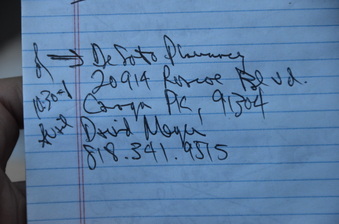 DeSoto Pharmacy
20914 Roscoe Blvd.
Canoga Pk, 91304
David Mayer
818.341.9515